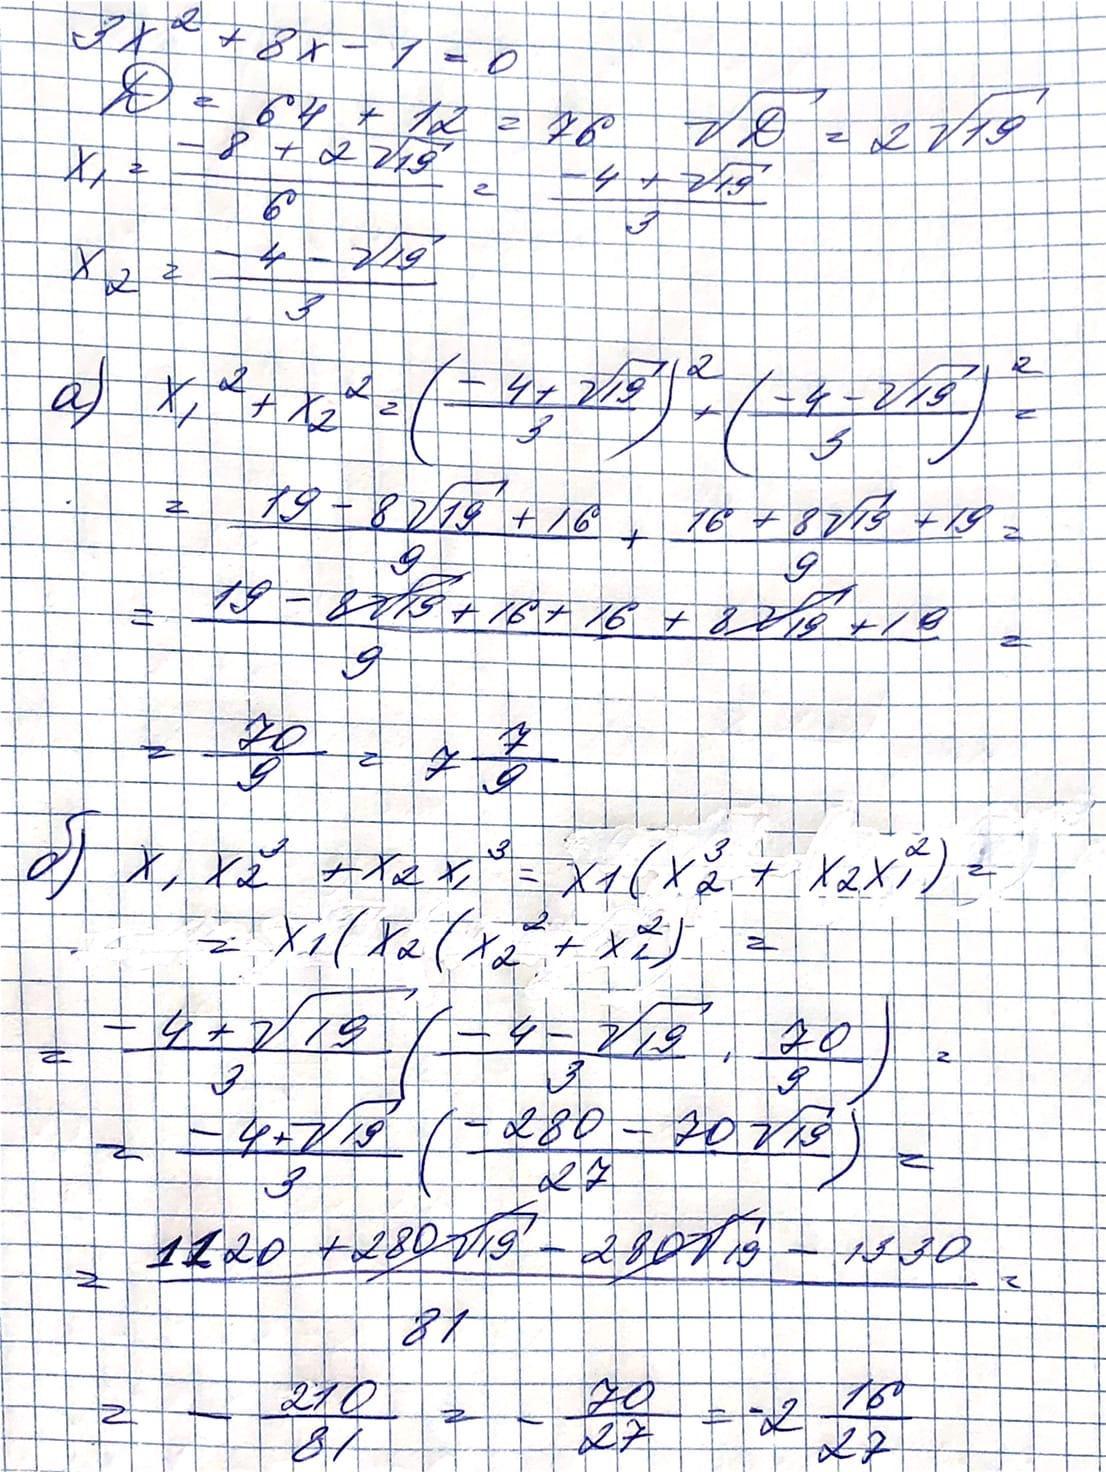 3x² + 8x - 1 = 0
D = 64 + 12 = 76 √D = 2√19
x₁ = (-8 + 2√19)/6 = (-4 + √19)/3
x₂ = (-4 - √19)/3
а) x₁² + x₂² = ((-4 + √19)/3)² + ((-4 - √19)/3)² =
= (19 - 8√19 + 16)/9 + (16 + 8√19 + 19)/9 =
= (19 - 8√19 + 16 + 16 + 8√19 + 19)/9 =
= 70/9 = 7 7/9
б) x₁x₂³ + x₂x₁³ = x1(x₂³ + x₂x₁²) =
= x1(x₂(x₂² + x₁²) =
= (-4 + √19)/3 ((-4 - √19)/3 · 70/9) =
= (-4 + √19)/3 ((-280 - 70√19)/27) =
= (1120 + 280√19 - 280√19 - 1330)/81 =
= - 210/81 = - 70/27 = -2 16/27